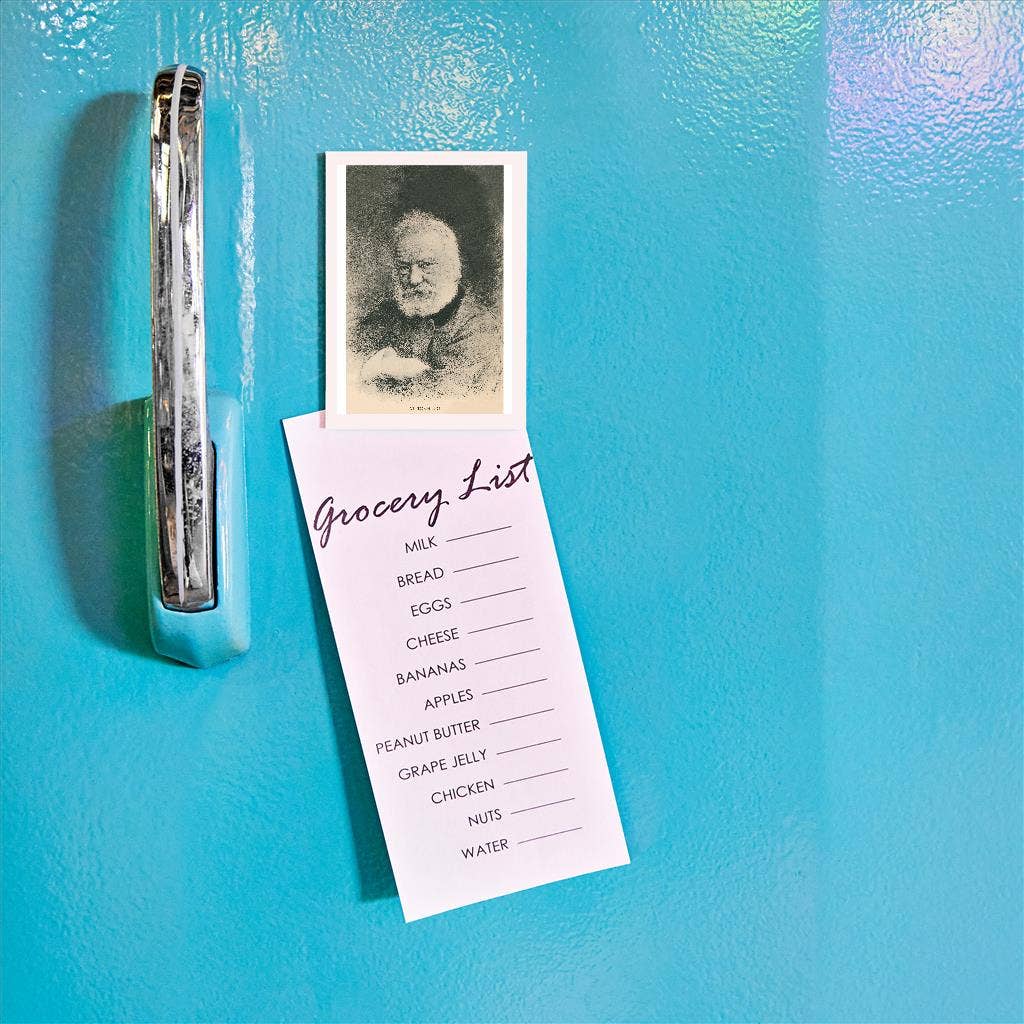 Grocery List
MILK
BREAD
EGGS
CHEESE
BANANAS
APPLES
PEANUT BUTTER
GRAPE JELLY
CHICKEN
NUTS
WATER